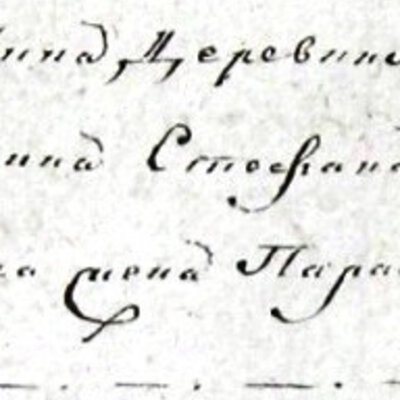 ина Деревни
нина Стефана
го жена Пара